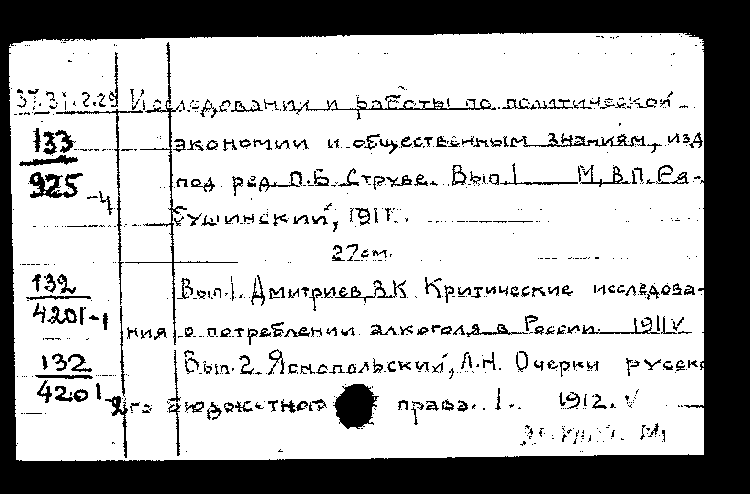 37.31.2.29 Исследования и работы по политической
133 экономии и общественным знаниям, изд
925-4 под ред. П.Б. Струве. Вып.1 М, В.П. Ря-
бушинский, 1911.
27см.
132 Вып.1. Дмитриев, В.К Критические исследова-
4201-1 ния о потреблении алкоголя в России. 1911 v
132 Вып.2. Яснопольский, Л.Н. Очерки русско
4201-2 го бюджетного права. 1. 1912. v